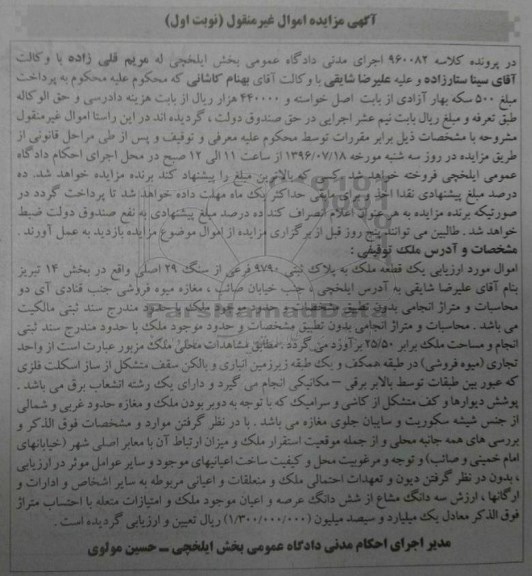 آگهی مزایده اموال غیرمنقول (نوبت اول)
در پرونده کلاسه ۹۶۰۰۸۲ اجرای مدنی دادگاه عمومی بخش ایلخچی له مریم قلی زاده با وکالت
آقای سینا ستارزاده و علیه علیرضا شایقی با وکالت آقای بهنام کاشانی که محکوم علیه محکوم به پرداخت
مبلغ ۵۰۰ سکه بهار آزادی از بابت اصل خواسته و ۴۴۰۰۰۰ هزار ریال از بابت هزینه دادرسی و حق الوکاله
طبق تعرفه و مبلغ ریال بابت نیم عشر اجرایی در حق صندوق دولت ، گردیده اند در این راستا اموال غیرمنقول
مشروحه با مشخصات ذیل برابر مقررات توسط محکوم علیه معرفی و توقیف و پس از طی مراحل قانونی از
طریق مزایده در روز سه شنبه مورخه ۱۳۹۶/۰۷/۱۸ از ساعت ۱۱ الی ۱۲ صبح در محل اجرای احکام دادگاه
عمومی ایلخچی فروخته خواهد شد کسی که بالاترین مبلغ را پیشنهاد کند برنده مزایده خواهد شد. ده
درصد مبلغ پیشنهادی نقدا اخذ و برای مابقی حداکثر یک ماه مهلت داده خواهد شد تا پرداخت گردد در
صورتیکه برنده مزایده به هر عنوان اعلام انصراف کند ده درصد مبلغ پیشنهادی به نفع صندوق دولت ضبط
خواهد شد . طالبین می توانند پنج روز قبل از برگزاری مزایده از اموال موضوع مزایده بازدید به عمل آورند .
مشخصات و آدرس ملک توقیفی :
اموال مورد ارزیابی یک قطعه ملک به پلاک ثبتی ۹۷۹۰ فرعی از سنگ ۲۹ اصلی واقع در بخش ۱۴ تبریز
بنام آقای علیرضا شایقی به آدرس ایلخچی ، جنب خیابان صائب ، مغازه میوه فروشی جنب قنادی آی دو
محاسبات و متراژ انجامی بدون تطبیق مشخصات و حدود موجود ملک با حدود مندرج سند ثبتی مالکیت
می باشد . محاسبات و متراژ انجامی بدون تطبیق مشخصات و حدود موجود ملک با حدود مندرج سند ثبتی
انجام و مساحت ملک برابر ۲۵/۵۰ برآورد می گردد . مطابق مشاهدات محلی ملک مزبور عبارت است از واحد
تجاری (میوه فروشی) در طبقه همکف و یک طبقه زیرزمین انباری و بالکن سقف متشکل از ساز اسکلت فلزی
که عبور بین طبقات توسط بالابر برقی – مکانیکی انجام می گیرد و دارای یک رشته انشعاب برق می باشد .
پوشش دیوارها و کف متشکل از کاشی و سرامیک که با توجه به دوبر بودن ملک و مغازه حدود غربی و شمالی
از جنس شیشه سکوریت و سایبان جلوی مغازه می باشد . با در نظر گرفتن موارد و مشخصات فوق الذکر و
بررسی های همه جانبه محلی و از جمله موقعیت استقرار ملک و میزان ارتباط آن با معابر اصلی شهر (خیابانهای
امام خمینی و صائب) و توجه و مرغوبیت محل و کیفیت ساخت اعیانیهای موجود و سایر عوامل موثر در ارزیابی
، بدون در نظر گرفتن دیون و تعهدات احتمالی ملک و متعلقات و اعیانی مربوطه به سایر اشخاص و ادارات و
ارگانها ، ارزش سه دانگ مشاع از شش دانگ عرصه و اعیان موجود ملک و امتیازات متعله با احتساب متراژ
فوق الذکر معادل یک میلیارد و سیصد میلیون (۱/۳۰۰/۰۰۰/۰۰۰) ریال تعیین و ارزیابی گردیده است .
مدیر اجرای احکام مدنی دادگاه عمومی بخش ایلخچی – حسین مولوی
ParsNamadData